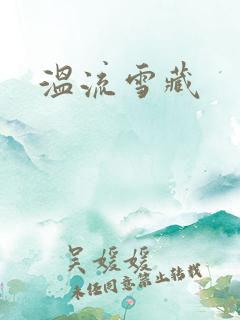 温流雪藏
吴媛媛
未经同意禁止转载